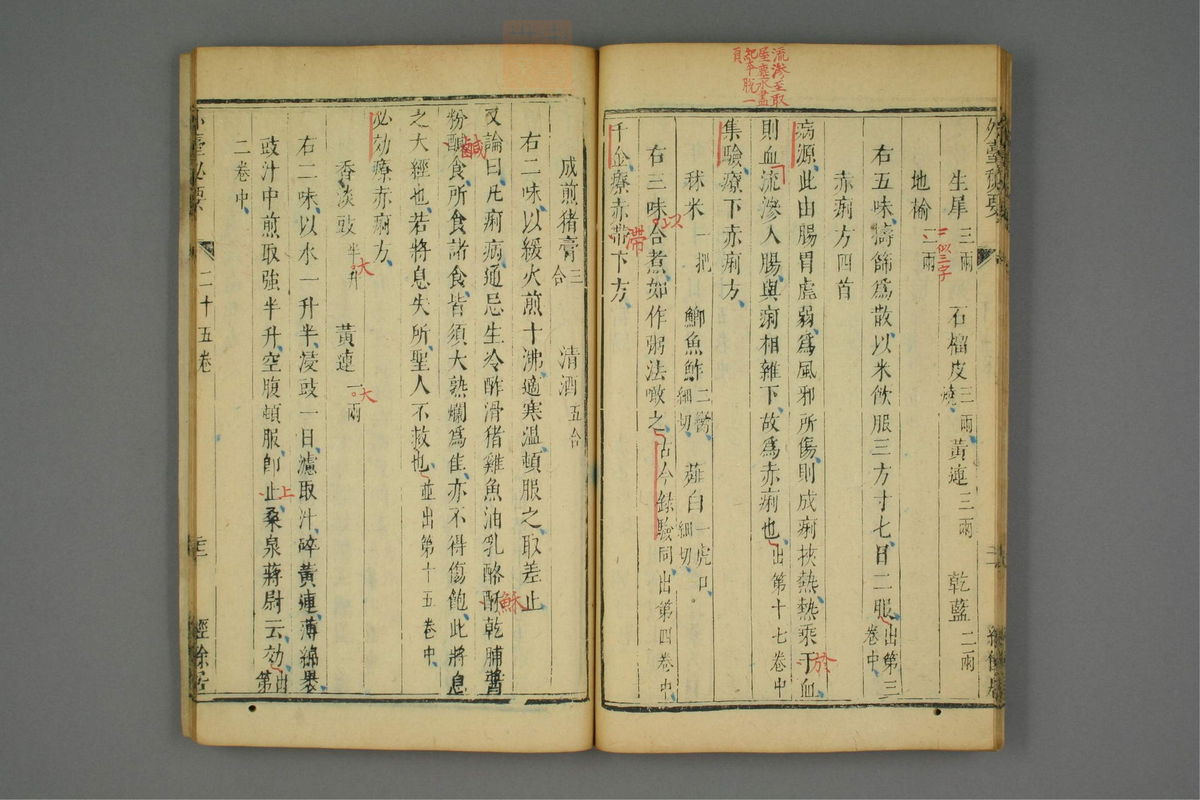 流滲至取
屋塵水盡
記本脫一
頁
外臺秘要
生犀三兩 石榴皮三兩燒 黃連三兩 乾藍二兩
地榆二兩
二似三字
右五味擣篩爲散以米飲服三方寸七日二服出第三卷中
赤痢方四首
病源此由腸胃虛弱爲風邪所傷則成痢挾熱熱乘于血
於
則血流滲入腸與痢相雜下故爲赤痢也出第十七卷中
集驗療下赤痢方
秫米一把 鯽魚鮓二臠細切 薤白一虎口細切
右三味合煮如作粥法噉之古今錄驗同出第四卷中
以
千金療赤帶下方
滯
成煎猪膏三合 清酒五合
右二味以緩火煎十沸適寒溫頓服之取差止
又論曰凡痢病通忌生冷酢滑猪雞魚油乳酪酥乾脯醬
穌
粉鹹食所食諸食皆須大熟爛爲佳亦不得傷飽此將息
鹹
之大經也若將息失所聖人不救也並出第十五卷中
必効療赤痢方
香淡豉半升 黃連一兩
大
大
右二味以水一升半浸豉一日濾取汁碎黃連薄綿裹
豉汁中煎取強半升空腹頓服卽止桑泉蔣尉云効出第
上
二卷中
二十五卷
經餘居